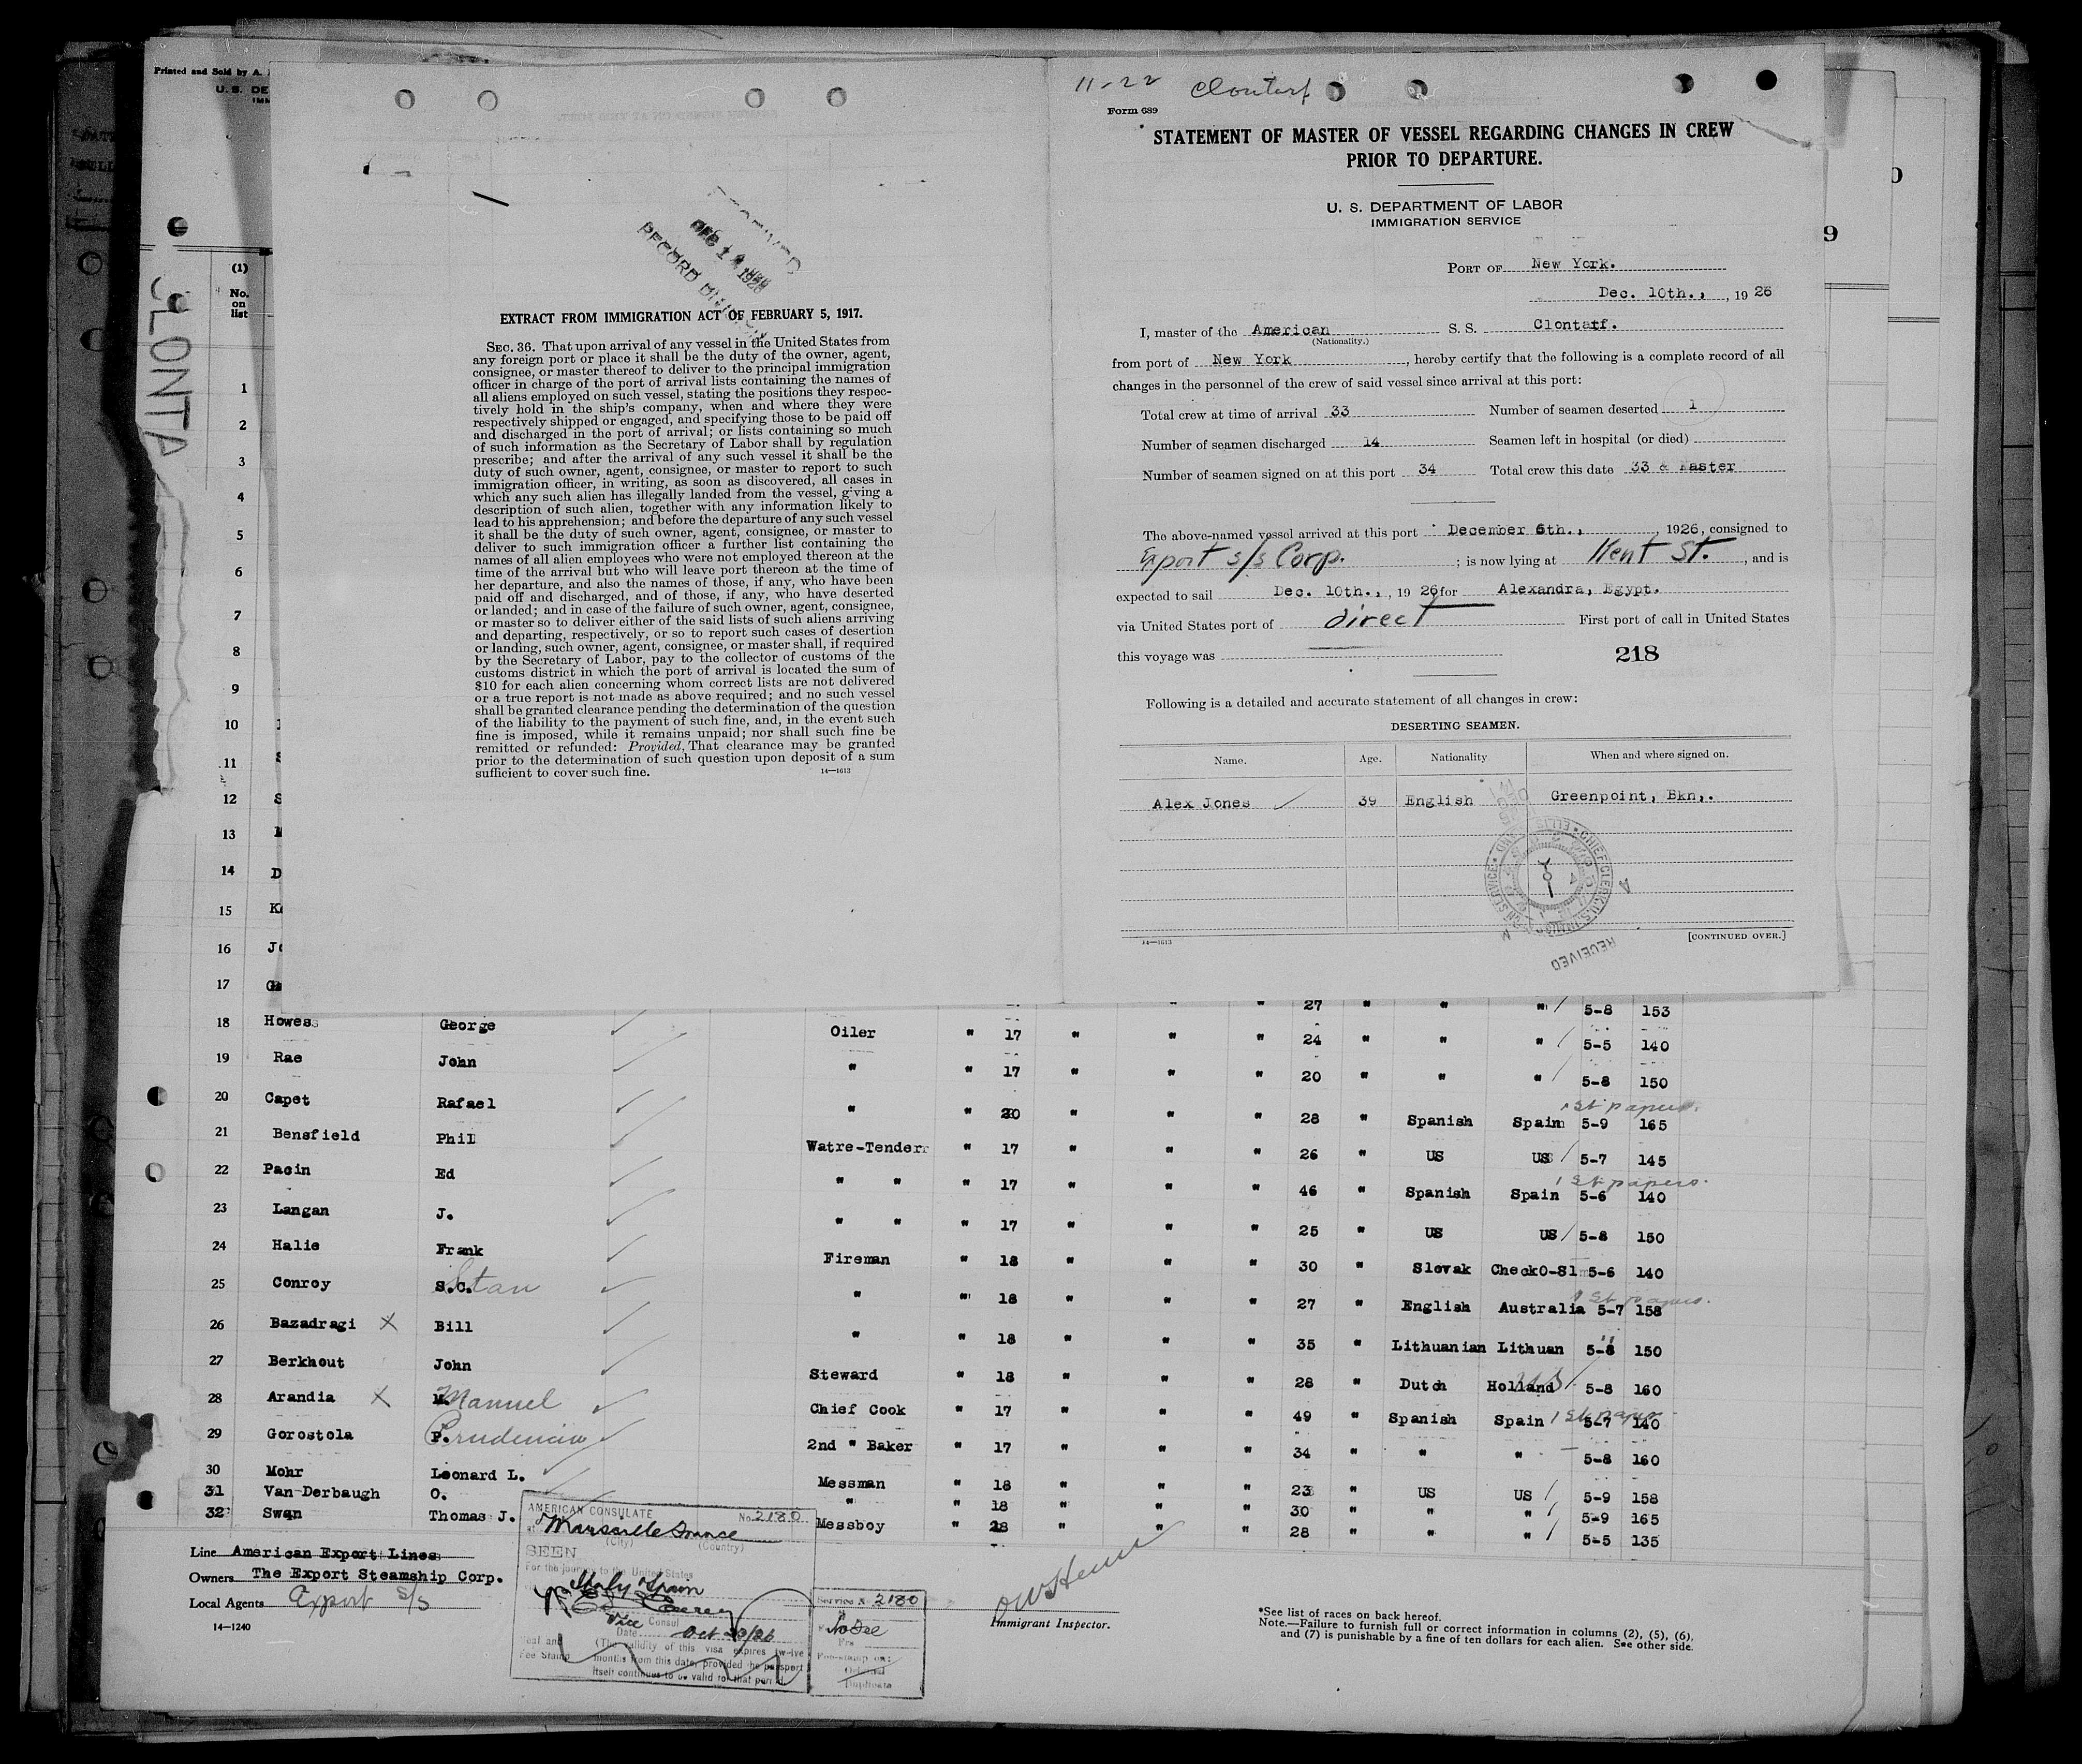 Printed and Sold by A.
U. S. DE
IMM
CLONTA
(1)
No.
on
list
1
2
3
4
5
6
7
8
9
10
11
12
13
14
15
16
17
RECORD
1926
EXTRACT FROM IMMIGRATION ACT OF FEBRUARY 5, 1917.
SEC. 36. That upon arrival of any vessel in the United States from
any foreign port or place it shall be the duty of the owner, agent,
consignee, or master thereof to deliver to the principal immigration
officer in charge of the port of arrival lists containing the names of
all aliens employed on such vessel, stating the positions they respec-
tively hold in the ship's company, when and where they were
respectively shipped or engaged, and specifying those to be paid off
and discharged in the port of arrival; or lists containing so much
of such information as the Secretary of Labor shall by regulation
prescribe; and after the arrival of any such vessel it shall be the
duty of such owner, agent, consignee, or master to report to such
immigration officer, in writing, as soon as discovered, all cases in
which any such alien has illegally landed from the vessel, giving a
description of such alien, together with any information likely to
lead to his apprehension; and before the departure of any such vessel
it shall be the duty of such owner, agent, consignee, or master to
deliver to such immigration officer a further list containing the
names of all alien employees who were not employed thereon at the
time of the arrival but who will leave port thereon at the time of
her departure, and also the names of those, if any, who have been
paid off and discharged, and of those, if any, who have deserted
or landed; and in case of the failure of such owner, agent, consignee,
or master so to deliver either of the said lists of such aliens arriving
and departing, respectively, or so to report such cases of desertion
or landing, such owner, agent, consignee, or master shall, if required
by the Secretary of Labor, pay to the collector of customs of the
customs district in which the port of arrival is located the sum of
$10 for each alien concerning whom correct lists are not delivered
or a true report is not made as above required; and no such vessel
shall be granted clearance pending the determination of the question
of the liability to the payment of such fine, and, in the event such
fine is imposed, while it remains unpaid; nor shall such fine be
remitted or refunded: Provided, That clearance may be granted
prior to the determination of such question upon deposit of a sum
sufficient to cover such fine. 14—1613
11-22 Clontarf
Form 689
STATEMENT OF MASTER OF VESSEL REGARDING CHANGES IN CREW
PRIOR TO DEPARTURE.
U. S. DEPARTMENT OF LABOR
IMMIGRATION SERVICE
PORT OF New York.
Dec. 10th., , 1926
I, master of the American S. S. Clontarf.
(Nationality.)
from port of New York , hereby certify that the following is a complete record of all
changes in the personnel of the crew of said vessel since arrival at this port:
Total crew at time of arrival 33 Number of seamen deserted 1
Number of seamen discharged 14 Seamen left in hospital (or died)
Number of seamen signed on at this port 34 Total crew this date 33 & Master
The above-named vessel arrived at this port December 6th., , 1926, consigned to
Export s/s Corp. ; is now lying at Kent St. , and is
expected to sail Dec. 10th., , 1926 for Alexandra, Egypt.
via United States port of direct First port of call in United States
this voyage was
218
Following is a detailed and accurate statement of all changes in crew:
DESERTING SEAMEN.
Name. Age. Nationality When and where signed on.
Alex Jones 39 English Greenpoint, Bkn,.
RECEIVED
14—1613 [CONTINUED OVER.]
9
" " " 27 " " " 5-8 153
18 Howes George Oiler " 17 " " " 24 " " " 5-5 140
19 Rae John " " 17 " " " 20 " " " 5-8 150
20 Capet Rafael " " 20 " " " 28 " Spanish Spain 5-9 165 1st papers.
21 Bensfield Phil Watre-Tender " 17 " " " 26 " US US 5-7 145
22 Pacin Ed " " " 17 " " " 46 " Spanish Spain 5-6 140 1st papers.
23 Langan J. " " " 17 " " " 25 " US US 5-8 150
24 Halie Frank Fireman " 18 " " " 30 " Slovak CheckO-Sl 5-6 140
25 Conroy S.C. Stan " " 18 " " " 27 " English Australia 5-7 158 1st papers.
26 Bazadragi X Bill " " 18 " " " 35 " Lithuanian Lithuan 5-8 150
27 Berkhout John Steward " 18 " " " 28 " Dutch Holland 5-8 160
28 Arandia X M. Manuel Chief Cook " 17 " " " 49 " Spanish Spain 5-7 140 1st papers
29 Gorostola P. Prudencio 2nd " Baker " 17 " " " 34 " " " 5-8 160
30 Mohr Leonard L. Messman " 18 " " " 23 " US US 5-9 158
31 Van-Derbaugh O. " " 18 " " " 30 " " " 5-9 165
32 Swan Thomas J. Messboy " 28 " " " 28 " " " 5-5 135
Line American Export Lines
Owners The Export Steamship Corp.
Local Agents Export S/S
14—1240
AMERICAN CONSULATE No. 2180
at Marseille France
(City) (Country)
SEEN
For the journey to the United States
Italy Spain
Vice Consul
Date Oct 23/26
Seal and
Fee Stamp
(The validity of this visa expires twelve
months from this date, provided the passport
itself continues to be valid for that period
Service No. 2180
No Fee
Fee-stamp on:
Original
Duplicate
Immigrant Inspector.
*See list of races on back hereof.
Note.—Failure to furnish full or correct information in columns (2), (5), (6),
and (7) is punishable by a fine of ten dollars for each alien. See other side.